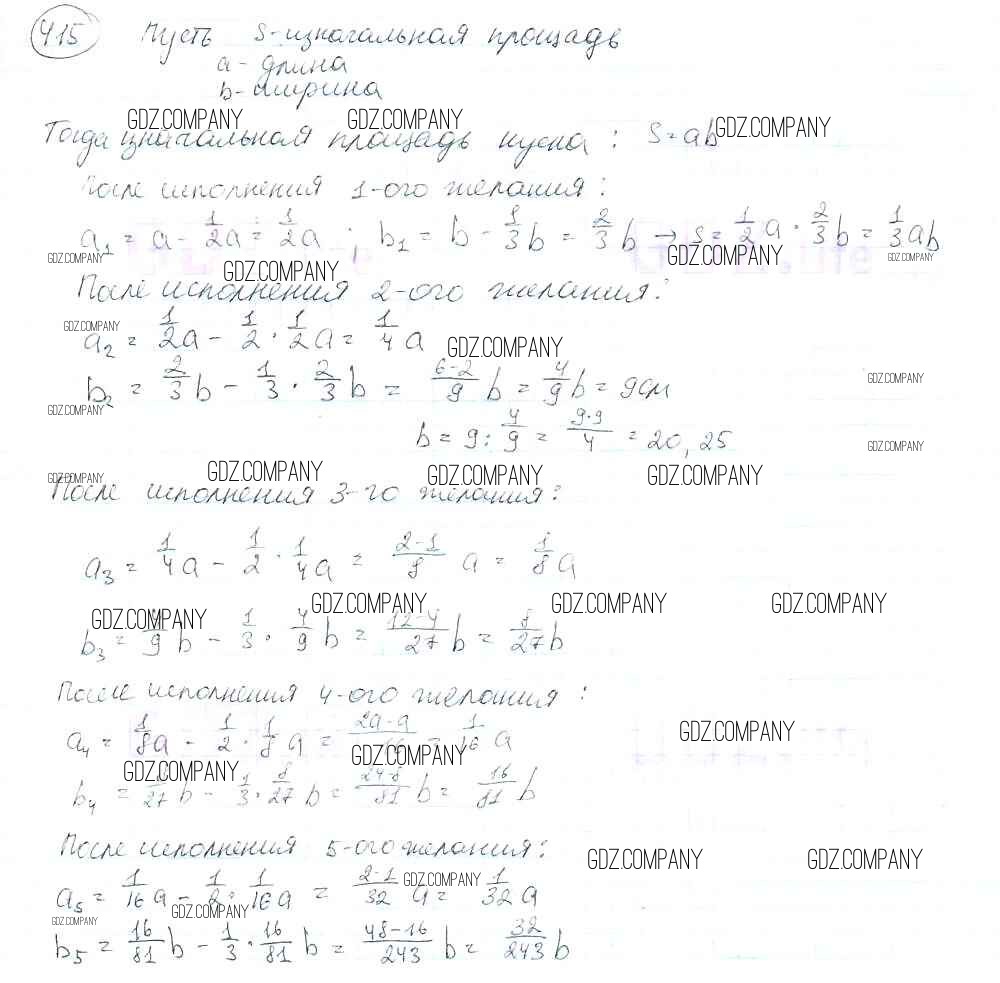 415 Пусть S - изначальная площадь
a - длина
b - ширина
GDZ.COMPANY GDZ.COMPANY GDZ.COMPANY
Тогда изначальная площадь куска : S = ab
После исполнения 1-ого желания :
a₁ = a - 1/2 a = 1/2 a ; b₁ = b - 1/3 b = 2/3 b → S = 1/2 a · 2/3 b = 1/3 ab
GDZ.COMPANY GDZ.COMPANY GDZ.COMPANY GDZ.COMPANY
После исполнения 2-ого желания :
GDZ.COMPANY
a₂ = 1/2 a - 1/2 · 1/2 a = 1/4 a
GDZ.COMPANY
b₂ = 2/3 b - 1/3 · 2/3 b = (6-2)/9 b = 4/9 b = 9см
GDZ.COMPANY GDZ.COMPANY
b = 9 : 4/9 = (9·9)/4 = 20,25
GDZ.COMPANY
GDZ.COMPANY GDZ.COMPANY GDZ.COMPANY GDZ.COMPANY
После исполнения 3-го желания :
a₃ = 1/4 a - 1/2 · 1/4 a = (2-1)/8 a = 1/8 a
GDZ.COMPANY GDZ.COMPANY GDZ.COMPANY GDZ.COMPANY
b₃ = 4/9 b - 1/3 · 4/9 b = (12-4)/27 b = 8/27 b
После исполнения 4-ого желания :
a₄ = 1/8 a - 1/2 · 1/8 a = (2a-a)/16 = 1/16 a
GDZ.COMPANY GDZ.COMPANY GDZ.COMPANY
b₄ = 8/27 b - 1/3 · 8/27 b = (24-8)/81 b = 16/81 b
После исполнения 5-ого желания :
GDZ.COMPANY GDZ.COMPANY
a₅ = 1/16 a - 1/2 · 1/16 a = (2-1)/32 a = 1/32 a
GDZ.COMPANY GDZ.COMPANY GDZ.COMPANY
b₅ = 16/81 b - 1/3 · 16/81 b = (48-16)/243 b = 32/243 b